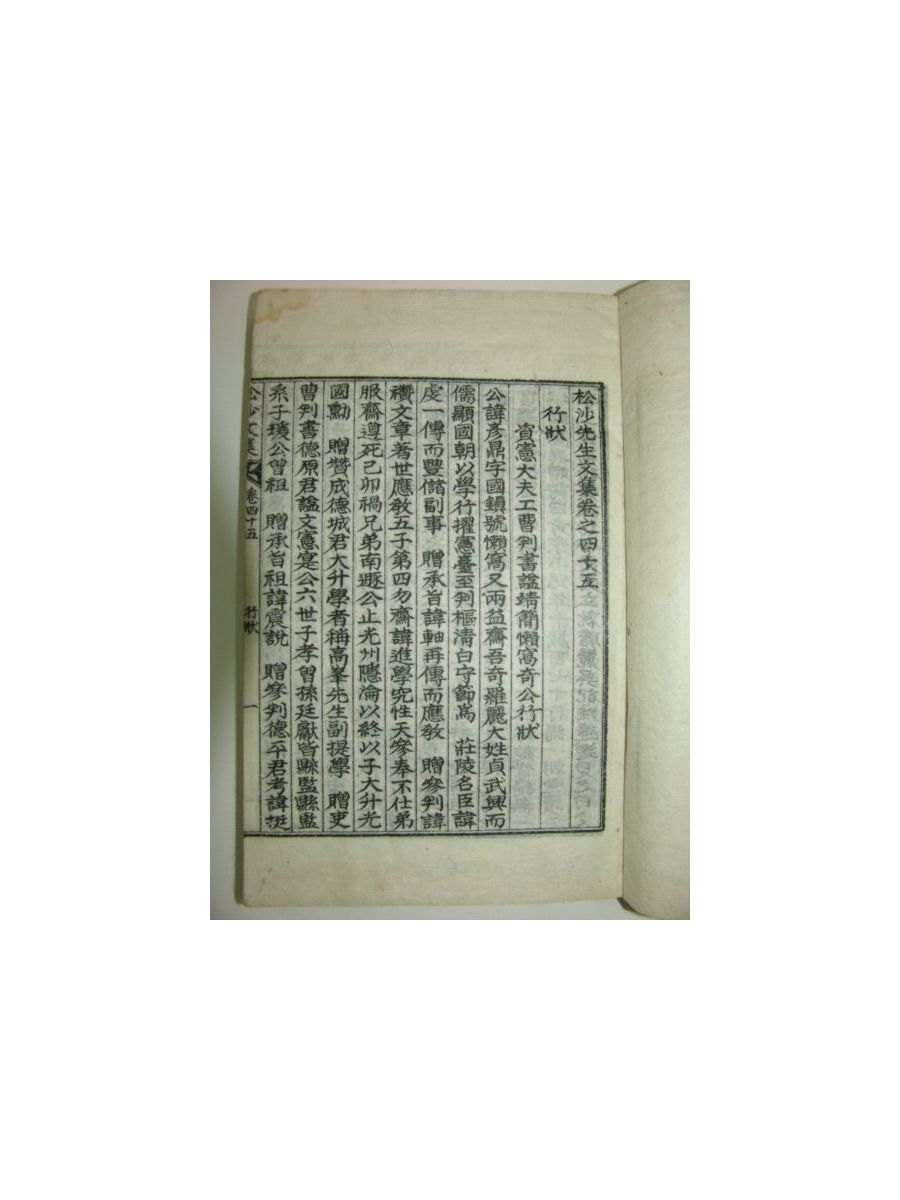 松沙先生文集卷之四十五
行狀
資憲大夫工曹判書諡靖簡懶窩奇公行狀
公諱彥鼎字國鎭號懶窩又兩益齋吾奇羅麗大姓貞武興而
儒顯國朝以學行擢憲臺至判樞淸白守節爲 莊陵名臣諱
虔一傳而豐儲副事 贈承旨諱軸再傳而應敎 贈參判諱
襸文章著世應敎五子第四勿齋諱進學究性天參奉不仕弟
服齋遵死己卯禍兄弟南遯公止光州隱淪以終以子大升光
國勳 贈贊成德城君大升學者稱高峯先生副提學 贈吏
曹判書德原君諡文憲寔公六世子孝曾孫廷獻皆縣監縣監
系子 公曾祖 贈承旨祖諱震說 贈參判德平君考諱挺
松沙文集 卷四十五 行狀 一